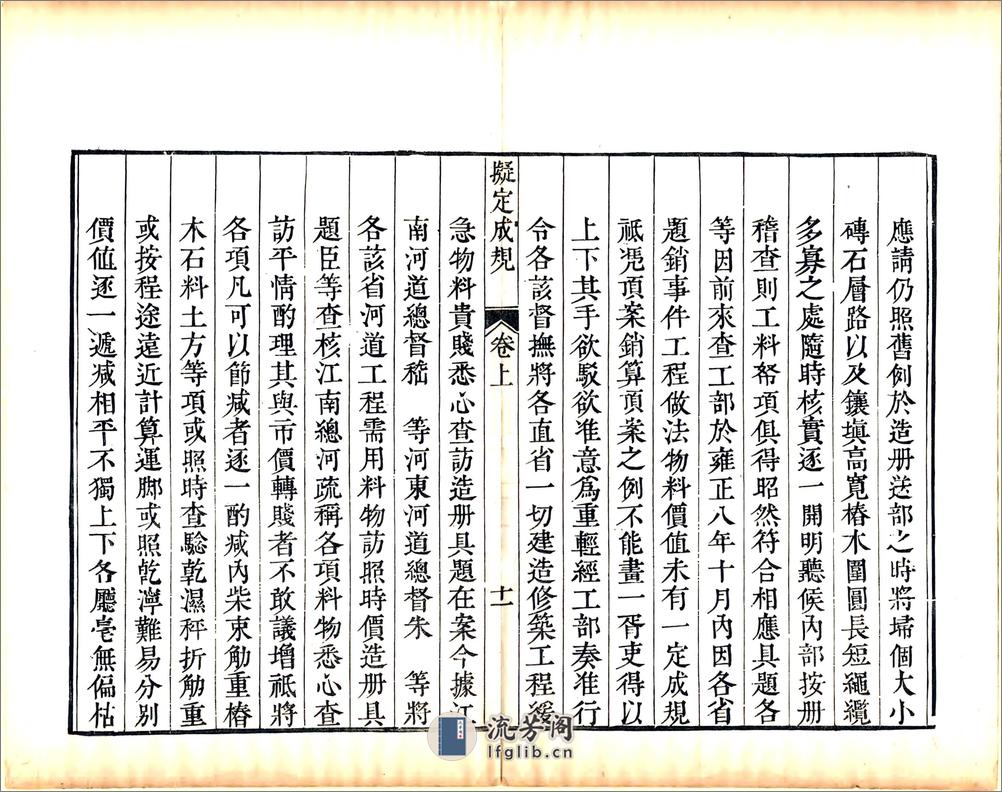 應請仍照舊例於造册送部之時將埽個大小
磚石層路以及鑲塡高寬樁木圍圓長短繩纜
多寡之處隨時核實逐一開明聽候內部按册
稽查則工料帑項俱得昭然符合相應具題各
等因前來查工部於雍正八年十月內因各省
題銷事件工程做法物料價值未有一定成規
祗凴項案銷算項案之例不能畫一胥吏得以
上下其手欲駁欲准意爲重輕經工部奏准行
令各該督撫將各直省一切建造修築工程緩
擬定成規 卷上 十一
急物料貴賤悉心查訪造册具題在案今據江
南河道總督嵇 等河東河道總督朱 等將
各該省河道工程需用料物訪照時價造册具
題臣等查核江南總河疏稱各項料物悉心查
訪平情酌理其與市價轉賤者不敢議增祗將
各項凡可以節減者逐一酌減內柴束觔重樁
木石料土方等項或照時查驗乾濕秤折觔重
或按程途遠近計算運脚或照乾濘難易分別
價值逐一遞減相平不獨上下各廳毫無偏枯
流芳阁
lfglib.cn